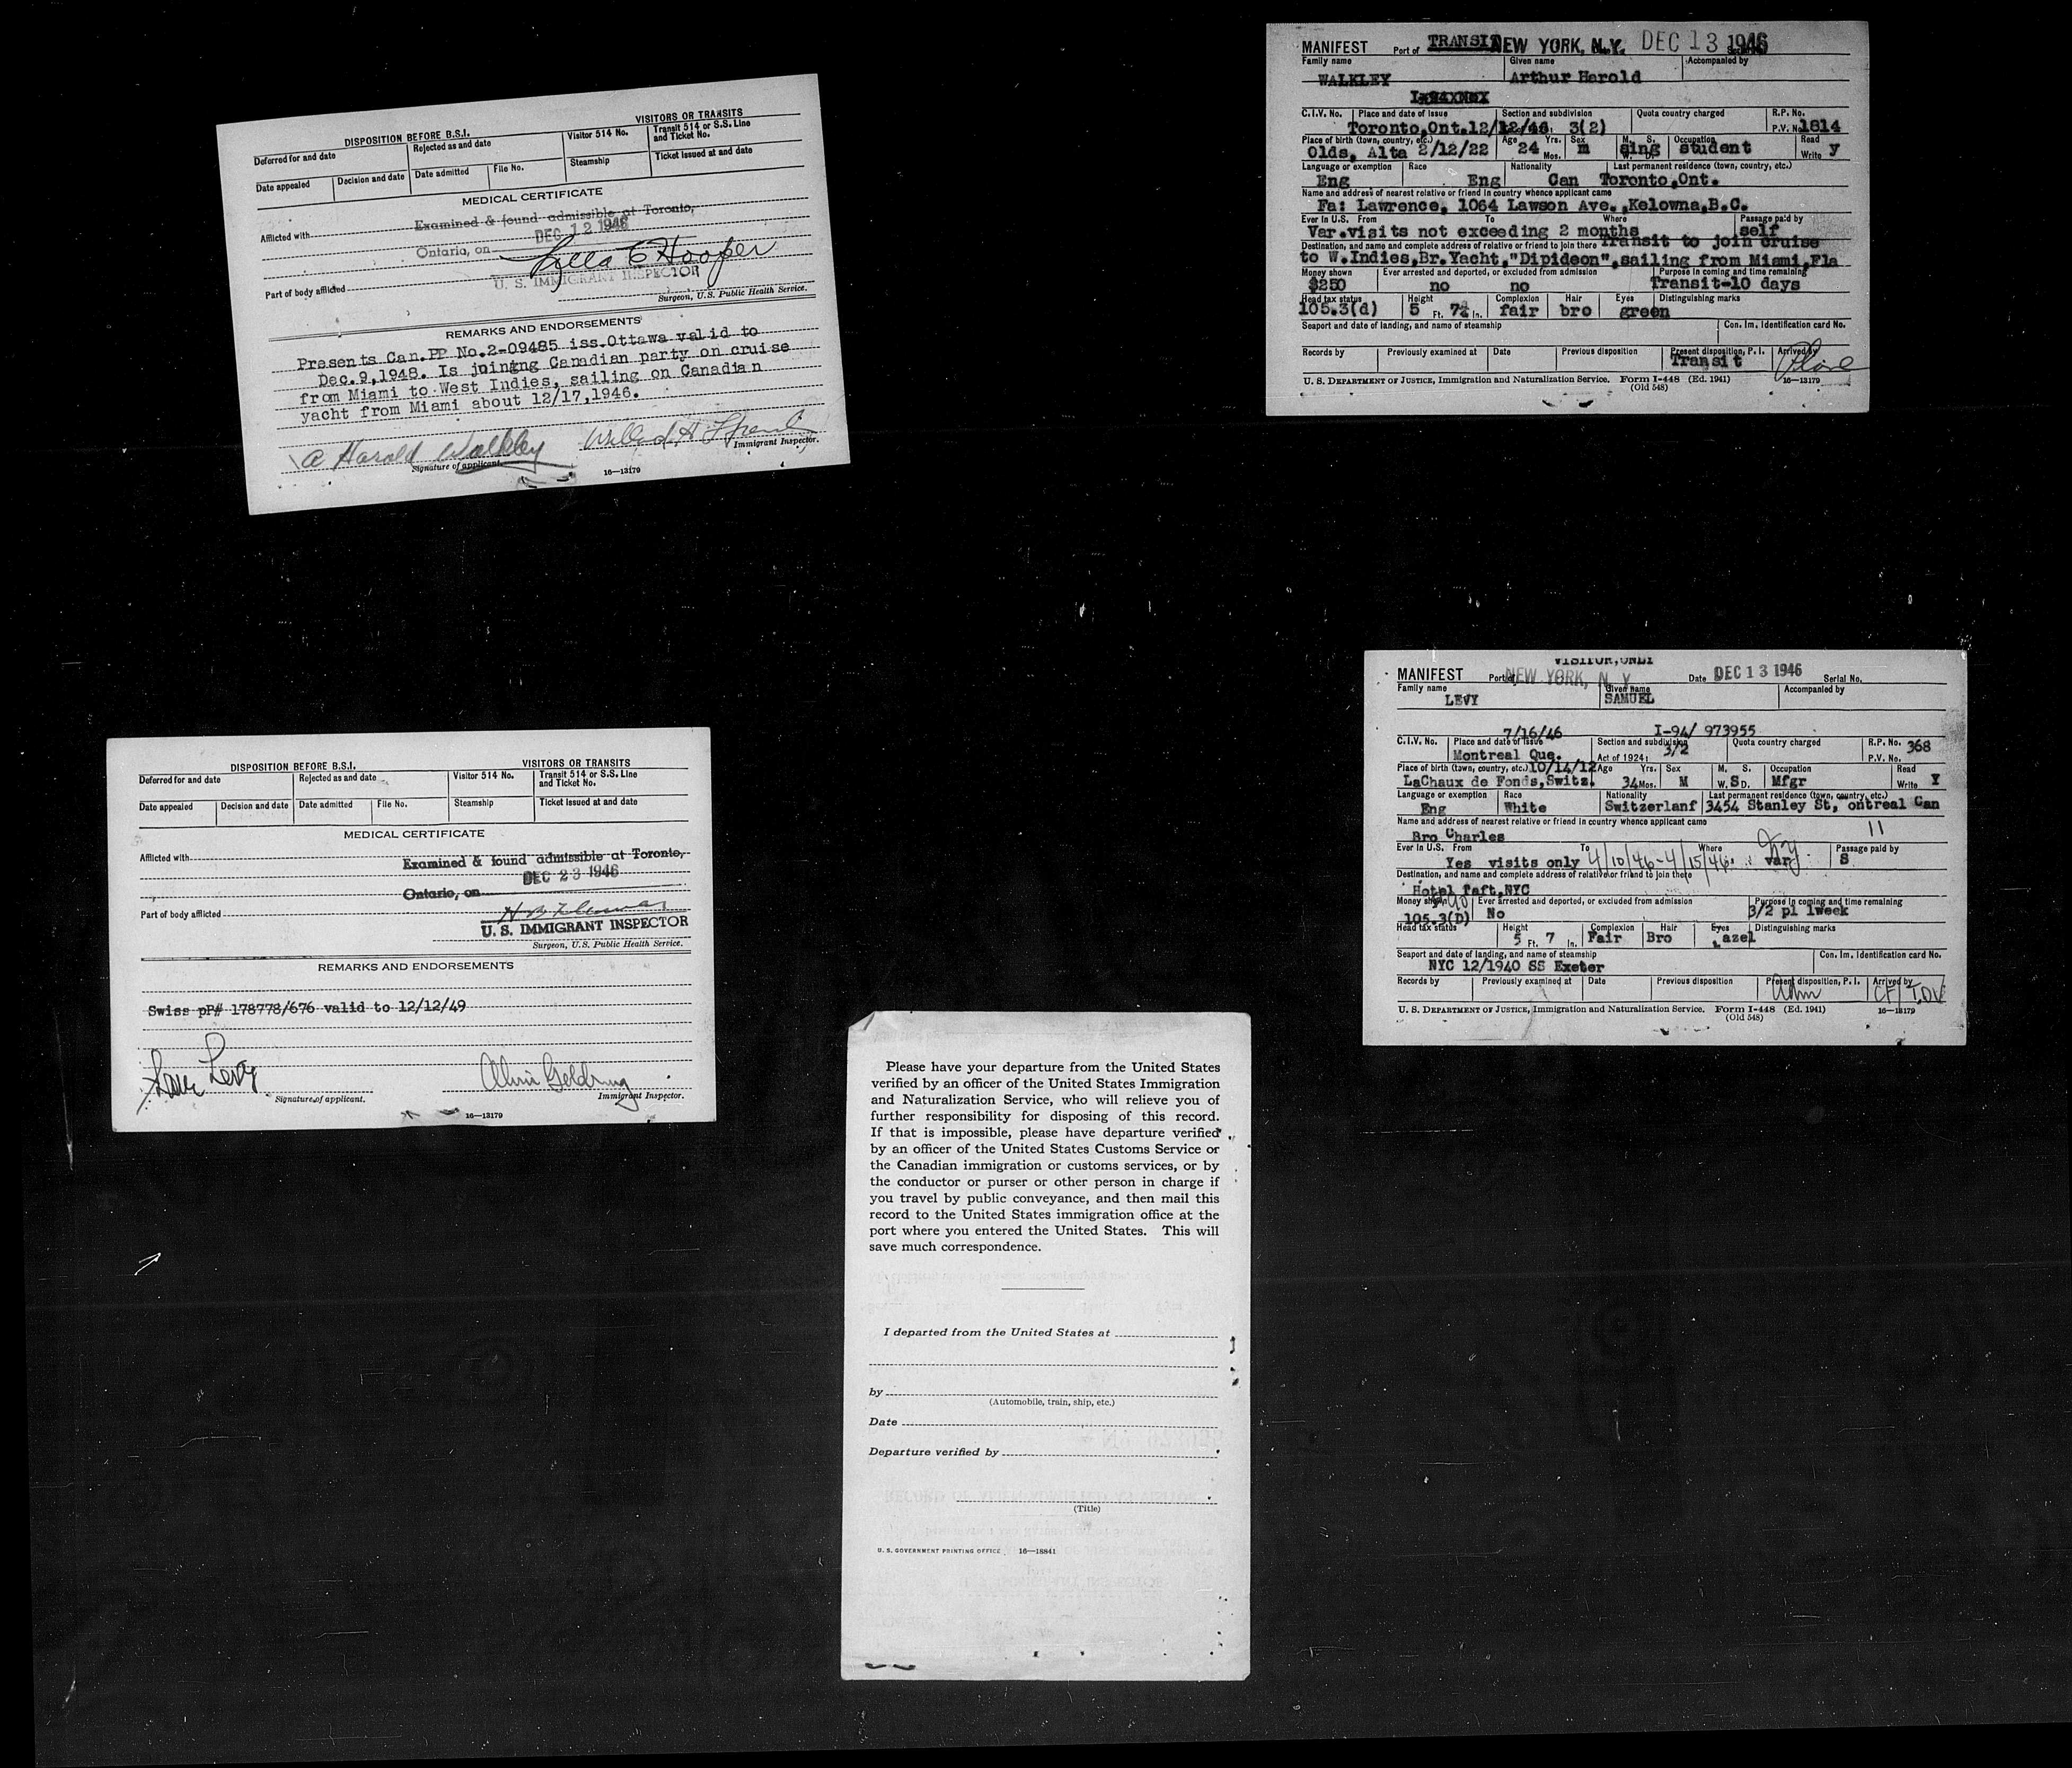 DISPOSITION BEFORE B.S.I. VISITORS OR TRANSITS
Deferred for and date Rejected as and date Visitor 514 No. Transit 514 or S.S. Line and Ticket No.
Date appealed Decision and date Date admitted File No. Steamship Ticket issued at and date
MEDICAL CERTIFICATE
Afflicted with Examined & found admissible at Toronto,
Ontario, on DEC 12 1946
Part of body afflicted U. S. IMMIGRANT INSPECTOR
Surgeon, U.S. Public Health Service.
REMARKS AND ENDORSEMENTS
Presents Can.PP No.2-09485 iss.Ottawa valid to
Dec.9,1948. Is joingng Canadian party on cruise
from Miami to West Indies, sailing on Canadian
yacht from Miami about 12/17,1946.
A Harold Walkley
Signature of applicant. Immigrant Inspector.
16—13179
MANIFEST Port of TRANSIT NEW YORK, N.Y. DEC 13 1946
Family name Given name Accompanied by
WALKLEY Arthur Harold
C.I.V. No. Place and date of issue Section and subdivision Quota country charged R.P. No.
Toronto,Ont.12/12/46 3(2) P.V. No. 1814
Place of birth (town, country, etc.) Age Yrs. Sex M. S. Occupation Read
Olds, Alta 2/12/22 24 Mos. m sing W. D. student Write y
Language or exemption Race Nationality Last permanent residence (town, country, etc.)
Eng Eng Can Toronto,Ont.
Name and address of nearest relative or friend in country whence applicant came
Fa: Lawrence, 1064 Lawson Ave.,Kelowna,B.C.
Ever in U.S. From To Where Passage paid by
Var.visits not exceeding 2 months self
Destination, and name and complete address of relative or friend to join there Transit to join cruise
to W.Indies,Br.Yacht,"Dipideon",sailing from Miami,Fla
Money shown Ever arrested and deported, or excluded from admission Purpose in coming and time remaining
$250 no no Transit-10 days
Head tax status Height Complexion Hair Eyes Distinguishing marks
105.3(d) 5 Ft. 7½ In. fair bro green
Seaport and date of landing, and name of steamship Con. Im. Identification card No.
Records by Previously examined at Date Previous disposition Present disposition, P. I. Arrived by
Transit
U. S. DEPARTMENT OF JUSTICE, Immigration and Naturalization Service. Form I-448 (Ed. 1941) 16—13179
(Old 548)
VISITOR,ONLY
MANIFEST Port of NEW YORK, N. Y. Date DEC 13 1946 Serial No.
Family name Given name Accompanied by
LEVY SAMUEL
7/16/46 I-94/ 973955
C.I.V. No. Place and date of issue Section and subdivision Quota country charged R.P. No. 368
Montreal Que. Act of 1924: 3/2 P.V. No.
Place of birth (town, country, etc.) 10/14/12 Age Yrs. Sex M. S. Occupation Read
LaChaux de Fonds,Switz. 34 Mos. M W. S D. Mfgr Write Y
Language or exemption Race Nationality Last permanent residence (town, country, etc.)
Eng White Switzerlanf 3454 Stanley St, ontreal Can
Name and address of nearest relative or friend in country whence applicant came
Bro Charles 11
Ever in U.S. From To Where Passage paid by
Yes visits only 4/10/46-4/15/46 var S
Destination, and name and complete address of relative or friend to join there
Hotel Taft,NYC
Money shown Ever arrested and deported, or excluded from admission Purpose in coming and time remaining
105.3(D) No 3/2 pl 1week
Head tax status Height Complexion Hair Eyes Distinguishing marks
5 Ft. 7 In. Fair Bro azel
Seaport and date of landing, and name of steamship Con. Im. Identification card No.
NYC 12/1940 SS Exeter
Records by Previously examined at Date Previous disposition Present disposition, P. I. Arrived by
Adm
U. S. DEPARTMENT OF JUSTICE, Immigration and Naturalization Service. Form I-448 (Ed. 1941) 16—13179
(Old 548)
DISPOSITION BEFORE B.S.I. VISITORS OR TRANSITS
Deferred for and date Rejected as and date Visitor 514 No. Transit 514 or S.S. Line and Ticket No.
Date appealed Decision and date Date admitted File No. Steamship Ticket issued at and date
MEDICAL CERTIFICATE
Afflicted with Examined & found admissible at Toronto,
DEC 23 1946
Ontario, on
Part of body afflicted
U. S. IMMIGRANT INSPECTOR
Surgeon, U.S. Public Health Service.
REMARKS AND ENDORSEMENTS
Swiss pP# 178778/676 valid to 12/12/49
Sam Levy
Signature of applicant. Immigrant Inspector.
16—13179
Please have your departure from the United States
verified by an officer of the United States Immigration
and Naturalization Service, who will relieve you of
further responsibility for disposing of this record.
If that is impossible, please have departure verified
by an officer of the United States Customs Service or
the Canadian immigration or customs services, or by
the conductor or purser or other person in charge if
you travel by public conveyance, and then mail this
record to the United States immigration office at the
port where you entered the United States. This will
save much correspondence.
I departed from the United States at
by
(Automobile, train, ship, etc.)
Date
Departure verified by
(Title)
U. S. GOVERNMENT PRINTING OFFICE 16—18841